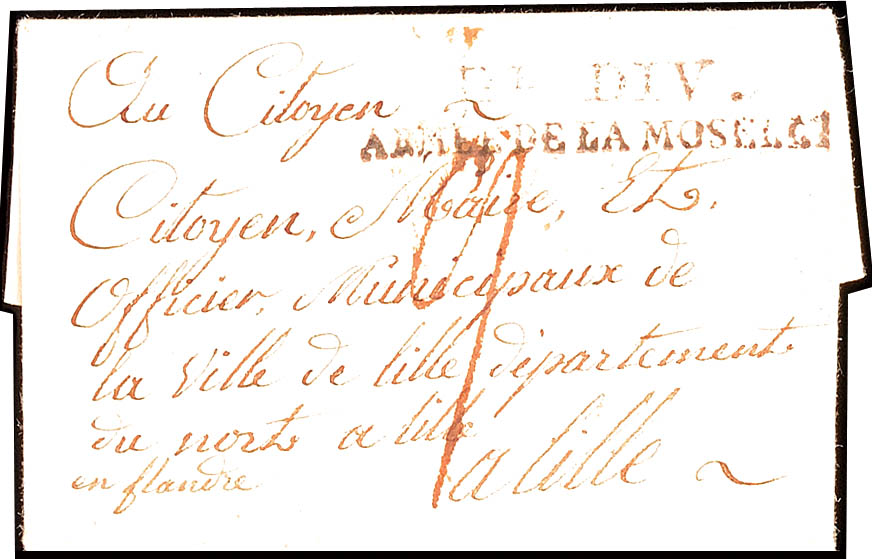 Au Citoyen
DIV.
ARMÉE DE LA MOSELLE
Citoyen, Maire, Et,
Officier, Municipaux de
la Ville de lille département
du nort a lille
en flandre
a lille